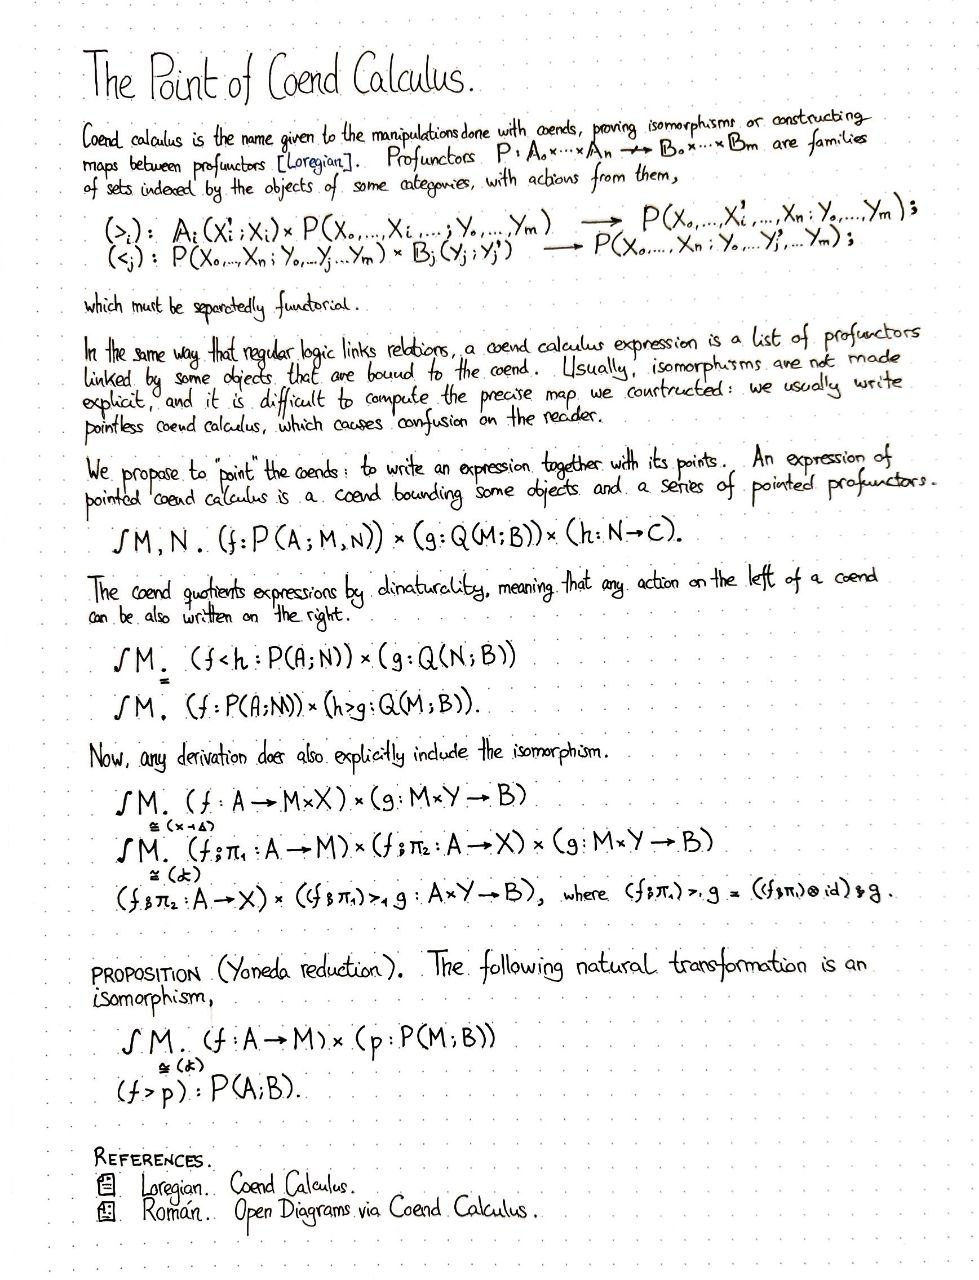 The Point of Coend Calculus.
Coend calculus is the name given to the manipulations done with coends, proving isomorphisms or constructing
maps between profunctors [Loregian]. Profunctors P: A₀×⋯×Aₙ ⇸ B₀×⋯×Bₘ are families
of sets indexed by the objects of some categories, with actions from them,
(>ᵢ): Aᵢ(Xᵢ';Xᵢ)× P(X₀,...,Xᵢ,...;Y₀,...,Yₘ) → P(X₀,...,Xᵢ',...,Xₙ;Y₀,...,Yₘ);
(<ⱼ): P(X₀,...,Xₙ;Y₀,...Yⱼ...Yₘ) × Bⱼ(Yⱼ;Yⱼ') → P(X₀,...,Xₙ;Y₀,...Yⱼ',...Yₘ);
which must be separatedly functorial.
In the same way that regular logic links relations, a coend calculus expression is a list of profunctors
linked by some objects that are bound to the coend. Usually, isomorphisms are not made
explicit, and it is difficult to compute the precise map we constructed: we usually write
pointless coend calculus, which causes confusion on the reader.
We propose to "point" the coends: to write an expression together with its points. An expression of
pointed coend calculus is a coend bounding some objects and a series of pointed profunctors.
∫M,N. (f:P(A;M,N)) × (g:Q(M;B)) × (h:N→C).
The coend quotients expressions by dinaturality, meaning that any action on the left of a coend
can be also written on the right.
∫M. (f<h:P(A;N)) × (g:Q(N;B))
=
∫M. (f:P(A;M)) × (h>g:Q(M;B)).
Now, any derivation does also explicitly include the isomorphism.
∫M. (f:A→M×X) × (g:M×Y→B)
≅ (×⊣Δ)
∫M. (f⨾π₁:A→M) × (f⨾π₂:A→X) × (g:M×Y→B)
≅ (よ)
(f⨾π₂:A→X) × ((f⨾π₁)>₁g:A×Y→B), where (f⨾π₁)>₁g = ((f⨾π₁)⊗id)⨾g.
PROPOSITION (Yoneda reduction). The following natural transformation is an
isomorphism,
∫M. (f:A→M) × (p:P(M;B))
≅ (よ)
(f>p):P(A;B).
REFERENCES.
Loregian. Coend Calculus.
Román. Open Diagrams via Coend Calculus.